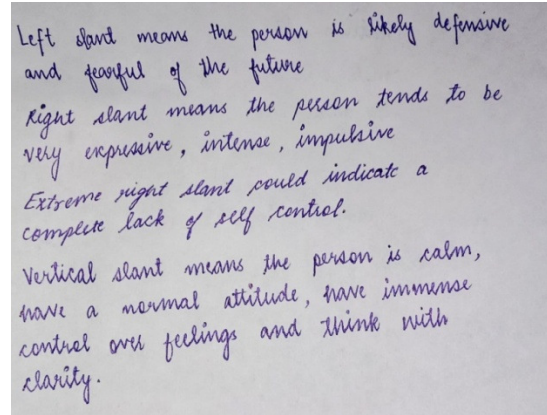 Left slant means the person is likely defensive
and fearful of the future
Right slant means the person tends to be
very expressive, intense, impulsive
Extreme right slant could indicate a
complete lack of self control.
Vertical slant means the person is calm,
have a normal attitude, have immense
control over feelings and think with
clarity.